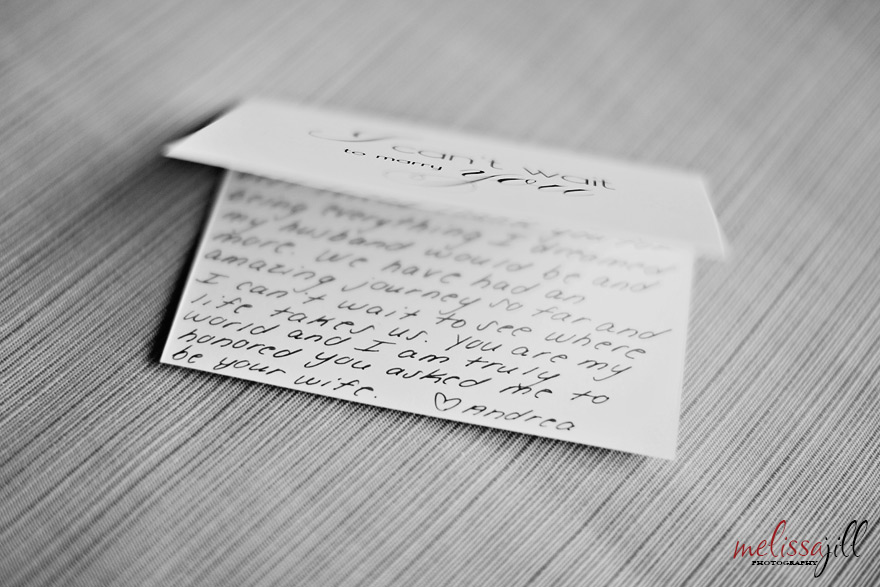 I can't wait
to marry you
you for
being everything I dreamed
my husband would be and
more. We have had an
amazing journey so far and
I can't wait to see where
life takes us. You are my
world and I am truly
honored you asked me to
be your wife. ♡ Andrea
melissajill
PHOTOGRAPHY